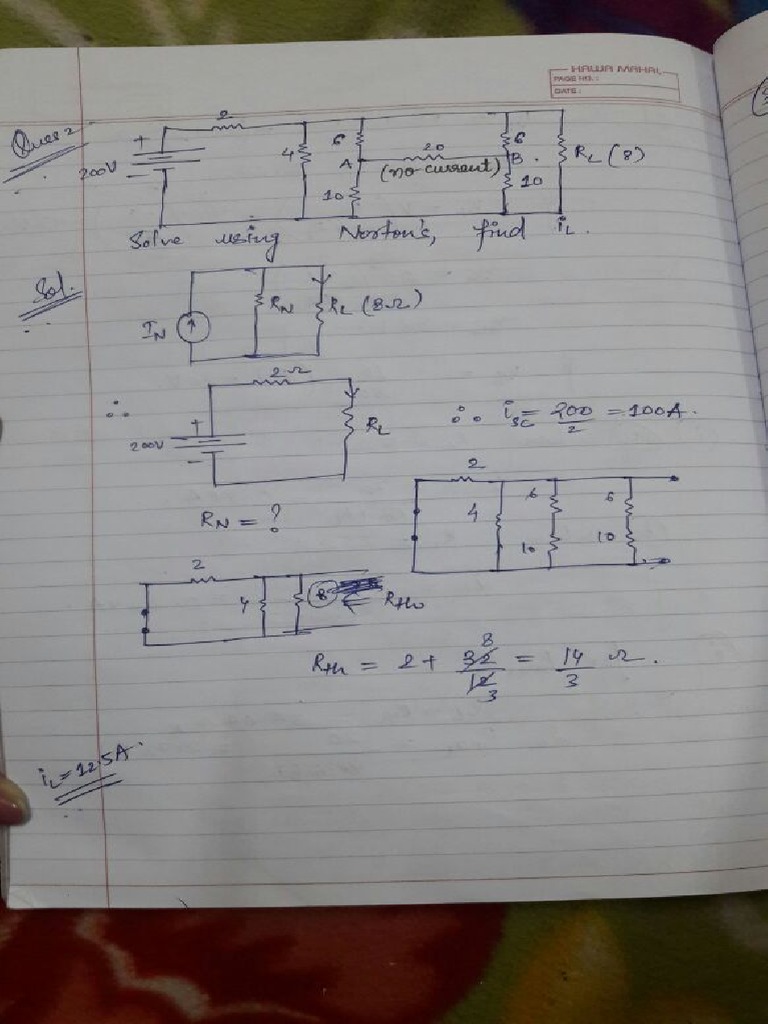 HAWA MAHAL
PAGE NO. :
DATE :
Ques 2
2
+
200V
-
4
6
A
20
(no current)
10
6
B
10
RL (8)
Solve using Norton's, find iL.
Sol.
IN
RN
RL (8Ω)
∴
2Ω
+
200V
-
RL
∴ isc = 200/2 = 100A.
RN = ?
2
4
6
10
6
10
2
4
8
← RTh
RTh = 2 + 32/12 = 14/3 Ω.
8
3
iL = 12.5A.